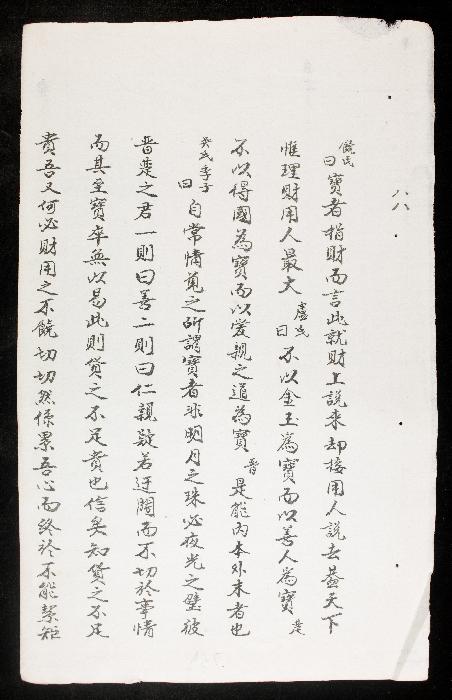 八八
饒氏曰寶者指財而言此就財上說來却接用人說去蓋天下
惟理財用人最大盧氏曰不以金玉為寶而以善人為寶楚
不以得國為寶而以愛親之道為寶晉是能內本外末者也
吳氏季子曰自常情觀之所謂寶者非明月之珠必夜光之璧彼
晉楚之君一則曰善二則曰仁親疑若迂闊而不切於事情
而其至寶卒無以易此則貨之不足貴也信矣知貨之不足
貴吾又何必財用之不饒切切然係累吾心而終於不能絜矩